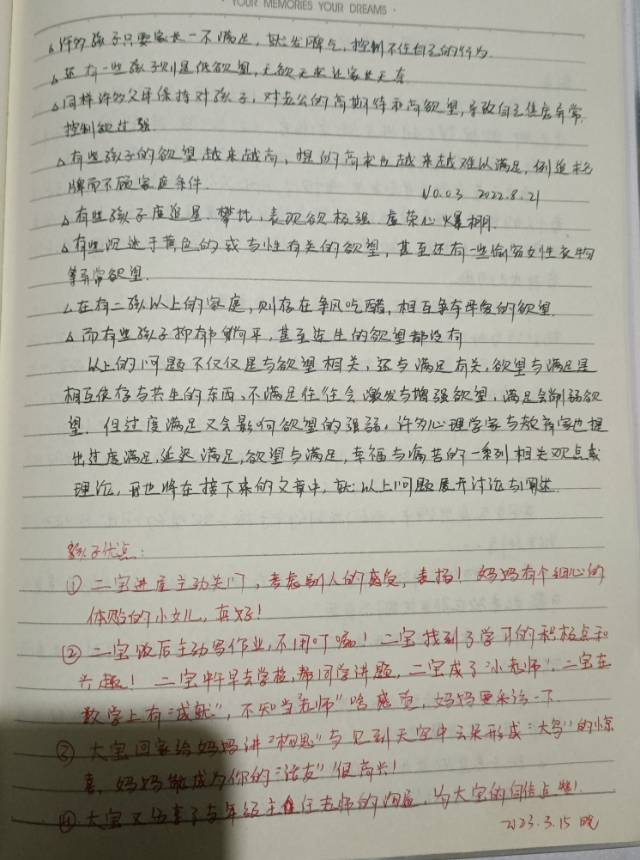 · YOUR MEMORIES YOUR DREAMS ·
△许多孩子只要家长一不满足，就发脾气，控制不住自己的行为.
△还有一些孩子则是低欲望，无欲无求让家长无奈
△同样许多父母保持对孩子，对老公的高期待和高欲望，导致自己焦虑异常，
控制欲过强.
△有些孩子的欲望越来越高，提的需求也越来越难以满足，例追求名
牌而不顾家庭条件.
No.03 2022.8.21
△有些孩子虚追星、攀比、表现欲极强、虚荣心爆棚.
△有些沉迷于黄色的或与性有关的欲望，甚至还有一些偷窃女性衣物
等异常欲望.
△在有二孩以上的家庭，则存在争风吃醋，相互争夺母爱的欲望.
△而有些孩子抑郁躺平，甚至连生的欲望都没有
以上的问题不仅仅是与欲望相关，还与满足有关，欲望与满足是
相互依存与共生的东西、不满足往往会激发与增强欲望，满足会削弱欲
望. 但过度满足又会影响欲望的强弱，许多心理学家与教育家也提
出过度满足，延迟满足，欲望与满足，幸福与痛苦的一系列相关观点或
理论，我也将在接下来的文章中，就以上问题展开讨论与阐述.
孩子优点：
①二宝进屋主动关门，考虑别人的感受，表扬！妈妈有个细心的
体贴的小女儿，真好！
②二宝饭后主动写作业，不用叮嘱！二宝找到了学习的积极点和
兴趣！二宝中午早去学校，帮同学讲题，二宝成了"小老师"，二宝在
数学上有"成就"，不知当"老师"啥感觉，妈妈要采访一下.
③大宝回家给妈妈讲"构思"与见到天空中云朵形成"大鸟"的惊
喜，妈妈能成为你的"话友"很高兴！
④大宝又分享了与年级主任老师的沟通，为大宝的自信点赞！
2023.3.15 晚